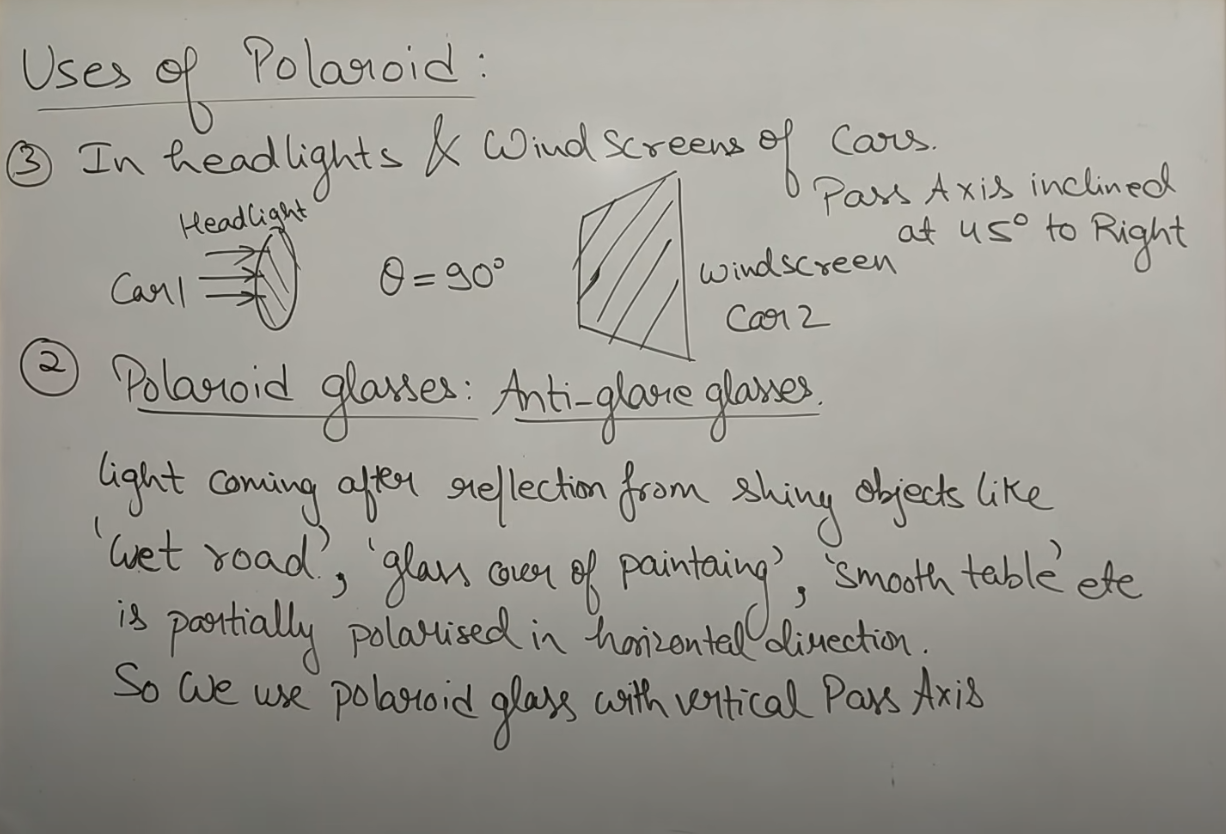 Uses of Polaroid :
③ In headlights & Wind Screens of Cars.
Pass Axis inclined
at 45° to Right
Headlight
Car 1
θ = 90°
windscreen
Car 2
② Polaroid glasses : Anti-glare glasses.
light coming after reflection from shiny objects like
'wet road', 'glass cover of paintaing', 'smooth table' etc
is partially polarised in horizontal direction.
So We use polaroid glass with vertical Pass Axis